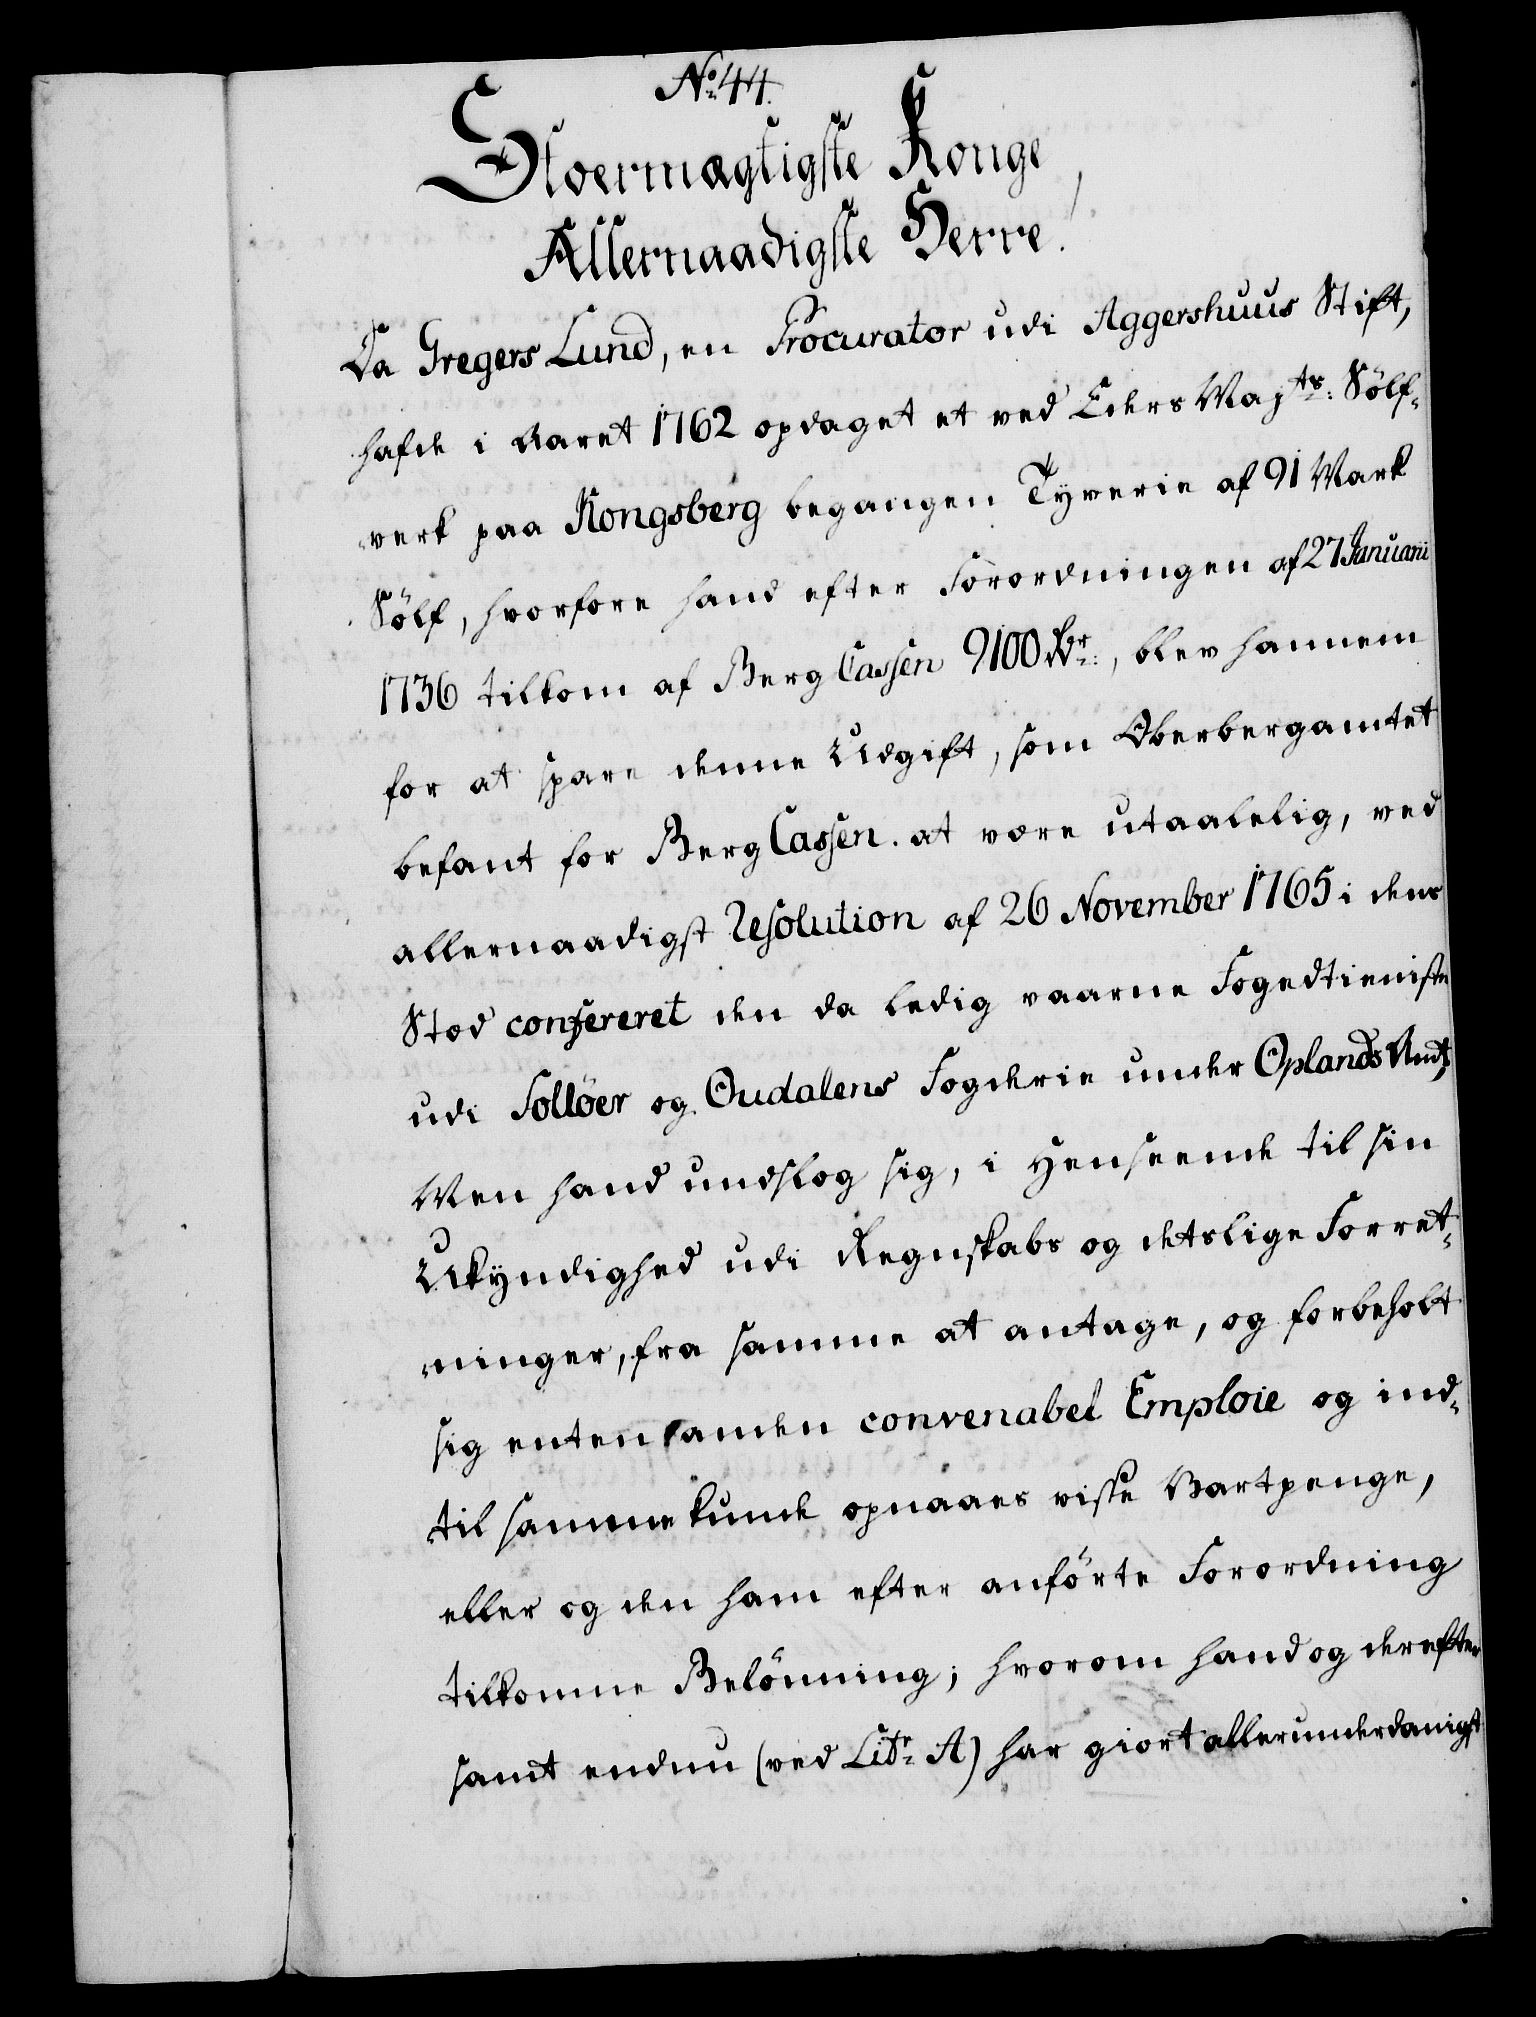 No. 44.
Stormægtigste Konge,
Allernaadigste Herre!
Da Gregers Lund, en Procurator udi Aggershuus Stift,
hafde i Aaret 1762 opdaget et ved Eders Majts: Sölf-
verk paa Kongsberg begangen Tyverie af 91 Mark
Sölf, hvorfore hand efter Forordningen af 27 Januarii
1736 tilkom af Berg Cassen 9100 Rdr:, blev hannem
for at spare denne Udgift, som Oberbergamtet
befant for Berg Cassen at være utaalelig, ved
allernaadigst Resolution af 26 November 1765 i dens
Stæd confereret den da ledig vaarne Fogedtieniste
udi Solløer og Oudalens Fogderie under Oplands Amt;
Men hand undslog sig, i Henseende til sin
Ukyndighed udi Regnskabs og detslige Forret-
ninger, fra samme at antage, og forbeholt
sig enten anden convenabel Emploie og ind-
til samme kunde opnaaes visse Vartpenge,
eller og den ham efter anförte Forordning
tilkomne Belönning; hvorom hand og derefter
samt endnu (ved Litr: A) har giort allerunderdanigst